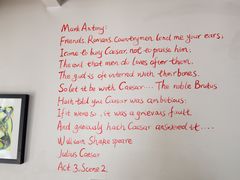 Mark Antony:
Friends, Romans, Countrymen, lend me your ears,
I come to bury Caesar, not to praise him.
The evil that men do lives after them,
The good is oft interred with their bones.
So let it be with Caesar.... The noble Brutus
Hath told you Caesar was ambitious:
If it were so, it was a grievous fault,
And grievously hath Caesar answered it....
William Shakespeare
Julius Caesar
Act 3, Scene 2